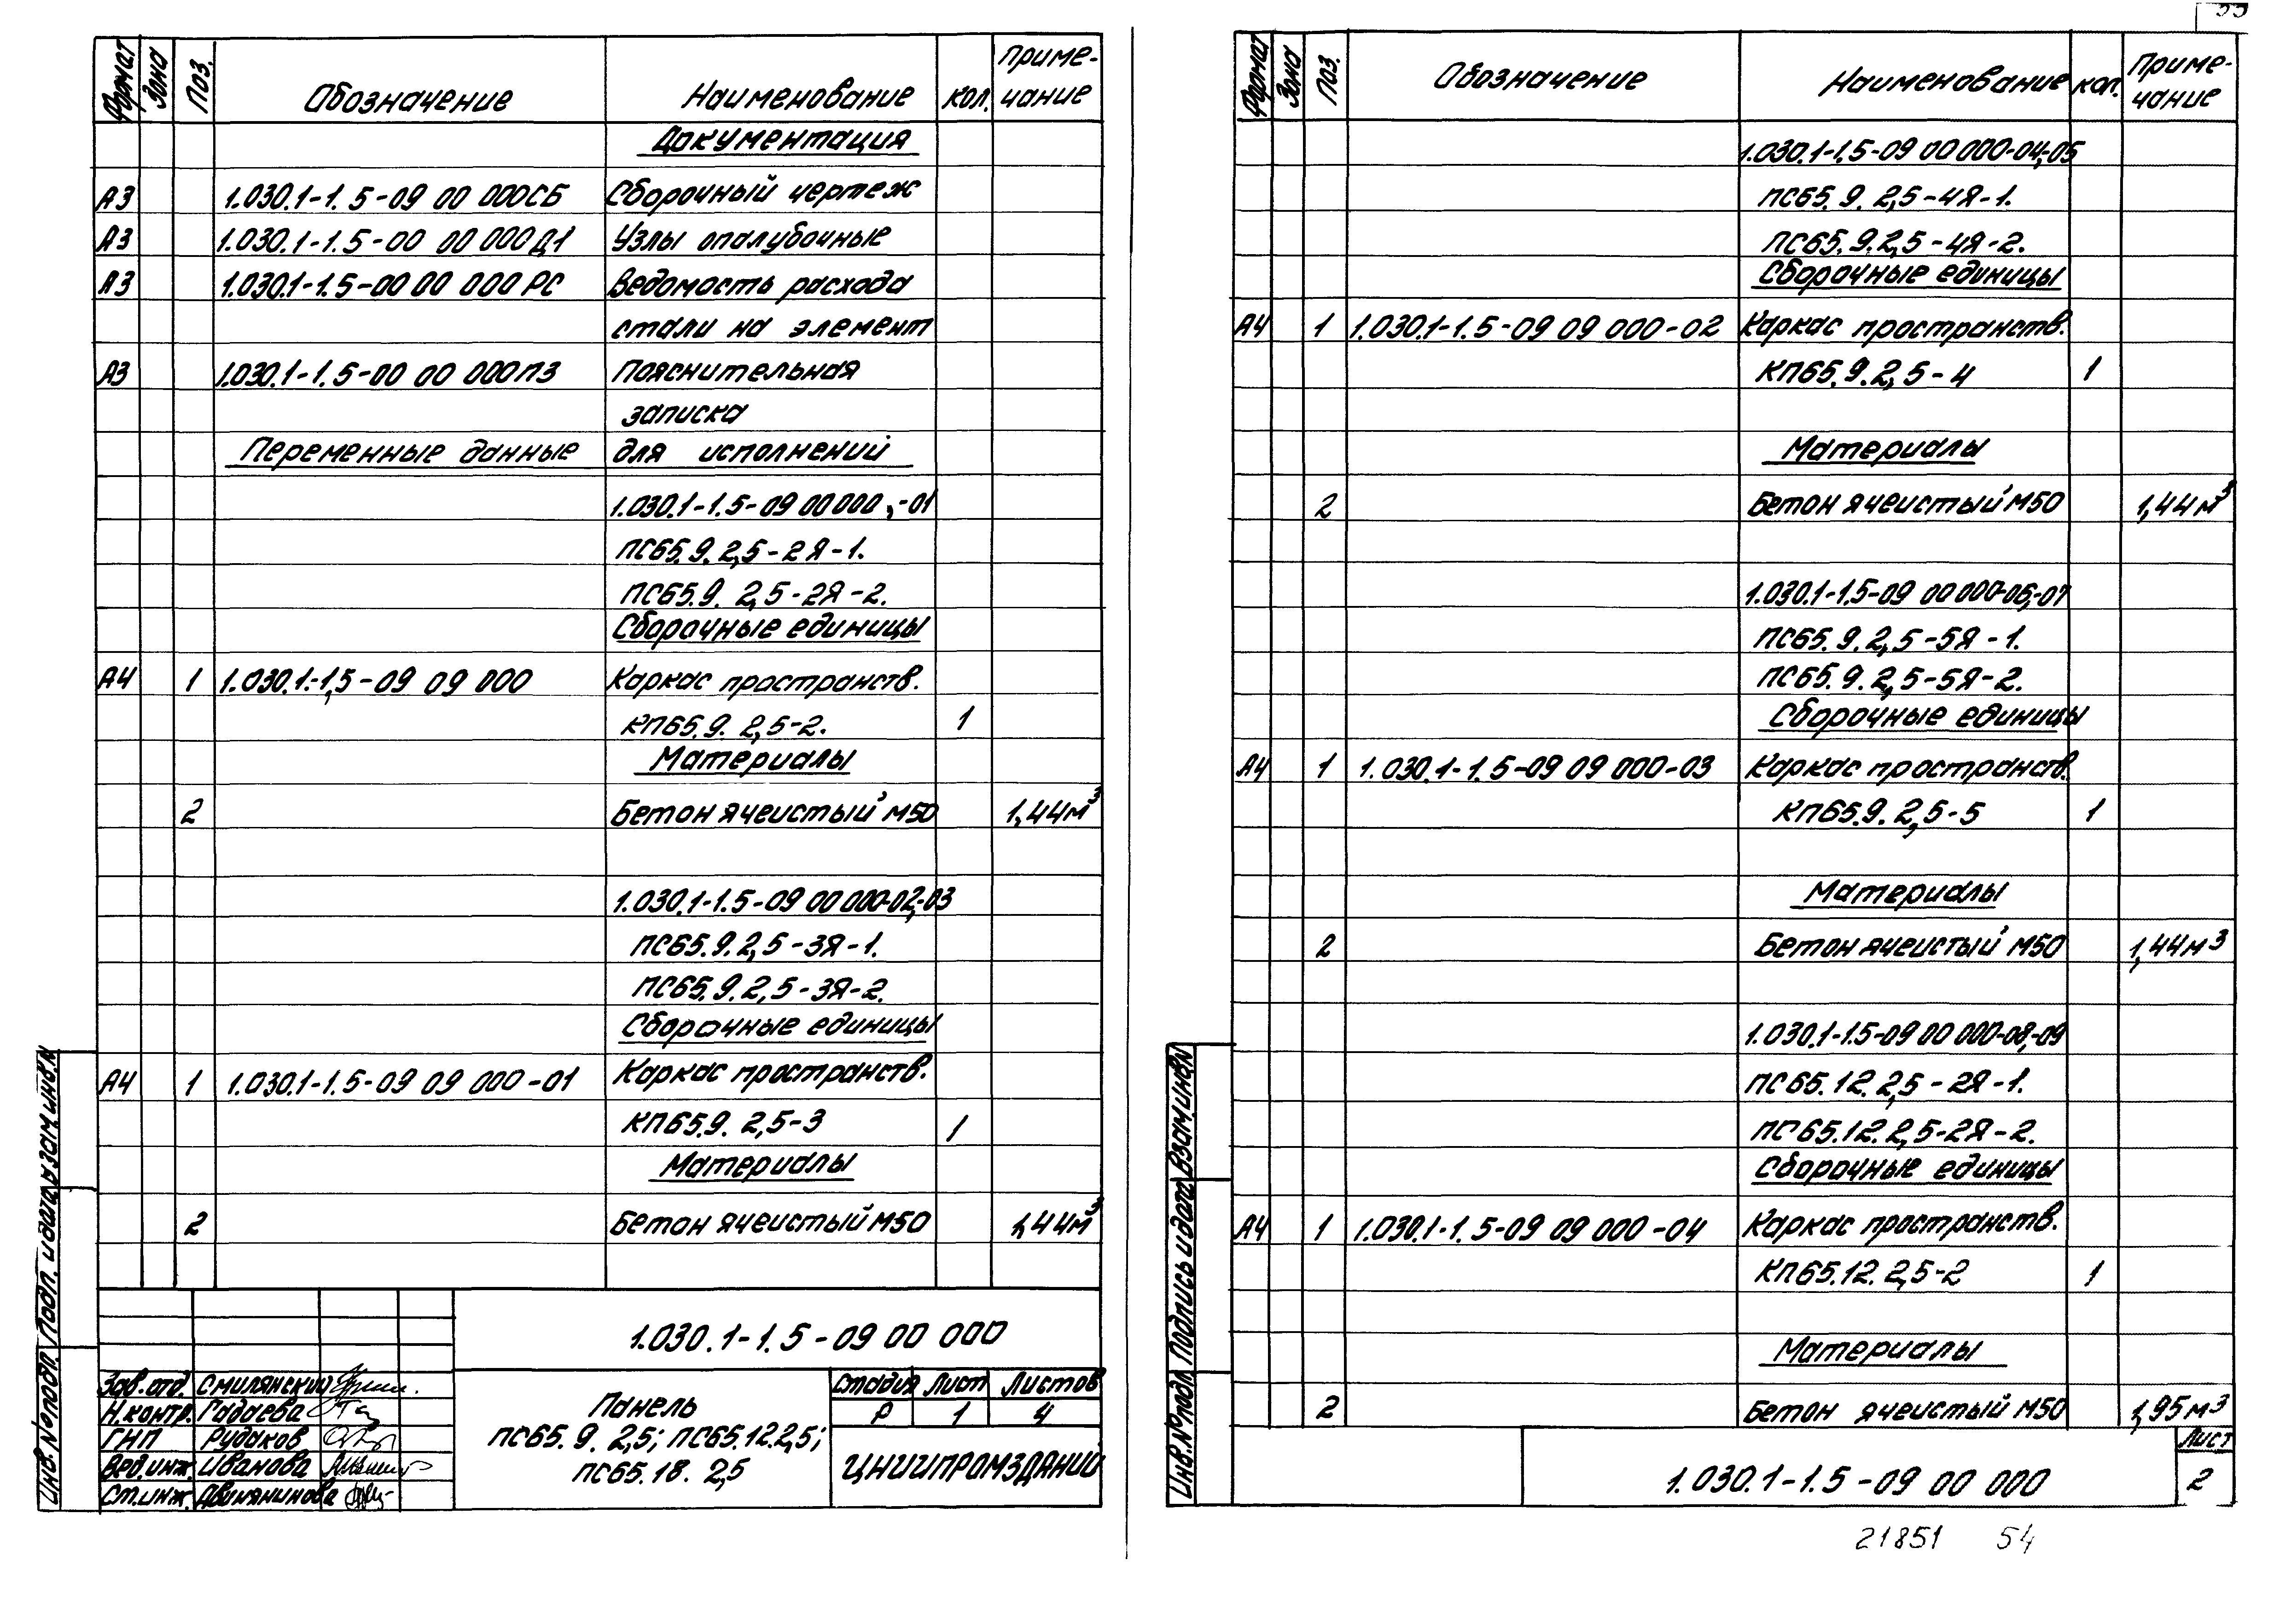 Формат Зона Поз. Обозначение Наименование Кол. Приме-
чание
Документация
А3 1.030.1-1.5-09 00 000СБ Сборочный чертеж
А3 1.030.1-1.5-00 00 000Д1 Узлы опалубочные
А3 1.030.1-1.5-00 00 000РС Ведомость расхода
стали на элемент
А3 1.030.1-1.5-00 00 000ПЗ Пояснительная
записка
Переменные данные для исполнений
1.030.1-1.5-09 00 000,-01
ПС65.9.2,5-2Я-1.
ПС65.9.2,5-2Я-2.
Сборочные единицы
А4 1 1.030.1-1,5-09 09 000 Каркас пространств.
КП65.9.2,5-2. 1
Материалы
2 Бетон ячеистый М50 1,44м³
1.030.1-1.5-09 00 000-02,-03
ПС65.9.2,5-3Я-1.
ПС65.9.2,5-3Я-2.
Сборочные единицы
А4 1 1.030.1-1.5-09 09 000-01 Каркас пространств.
КП65.9.2,5-3 1
Материалы
2 Бетон ячеистый М50 1,44м³
1.030.1-1.5-09 00 000
Зав.отд. Смилянский
Н.контр. Гадаева
ГНП Рудаков
Вед.инж. Иванова
Ст.инж. Двинянинова
Панель
ПС65.9.2,5; ПС65.12.2,5;
ПС65.18.2,5
Стадия Лист Листов
Р 1 4
ЦНИИПРОМЗДАНИЙ
Инв.№подл. Подп. и дата Взам.инв.№
Формат Зона Поз. Обозначение Наименование Кол. Приме-
чание
1.030.1-1.5-09 00 000-04,-05
ПС65.9.2,5-4Я-1.
ПС65.9.2,5-4Я-2.
Сборочные единицы
А4 1 1.030.1-1.5-09 09 000-02 Каркас пространств.
КП65.9.2,5-4 1
Материалы
2 Бетон ячеистый М50 1,44м³
1.030.1-1.5-09 00 000-06,-07
ПС65.9.2,5-5Я-1.
ПС65.9.2,5-5Я-2.
Сборочные единицы
А4 1 1.030.1-1.5-09 09 000-03 Каркас пространств.
КП65.9.2,5-5 1
Материалы
2 Бетон ячеистый М50 1,44м³
1.030.1-1.5-09 00 000-08,-09
ПС65.12.2,5-2Я-1.
ПС65.12.2,5-2Я-2.
Сборочные единицы
А4 1 1.030.1-1.5-09 09 000-04 Каркас пространств.
КП65.12.2,5-2 1
Материалы
2 Бетон ячеистый М50 1,95м³
1.030.1-1.5-09 00 000
Лист
2
Инв.№подл. Подпись и дата Взам.инв.№
21851 54